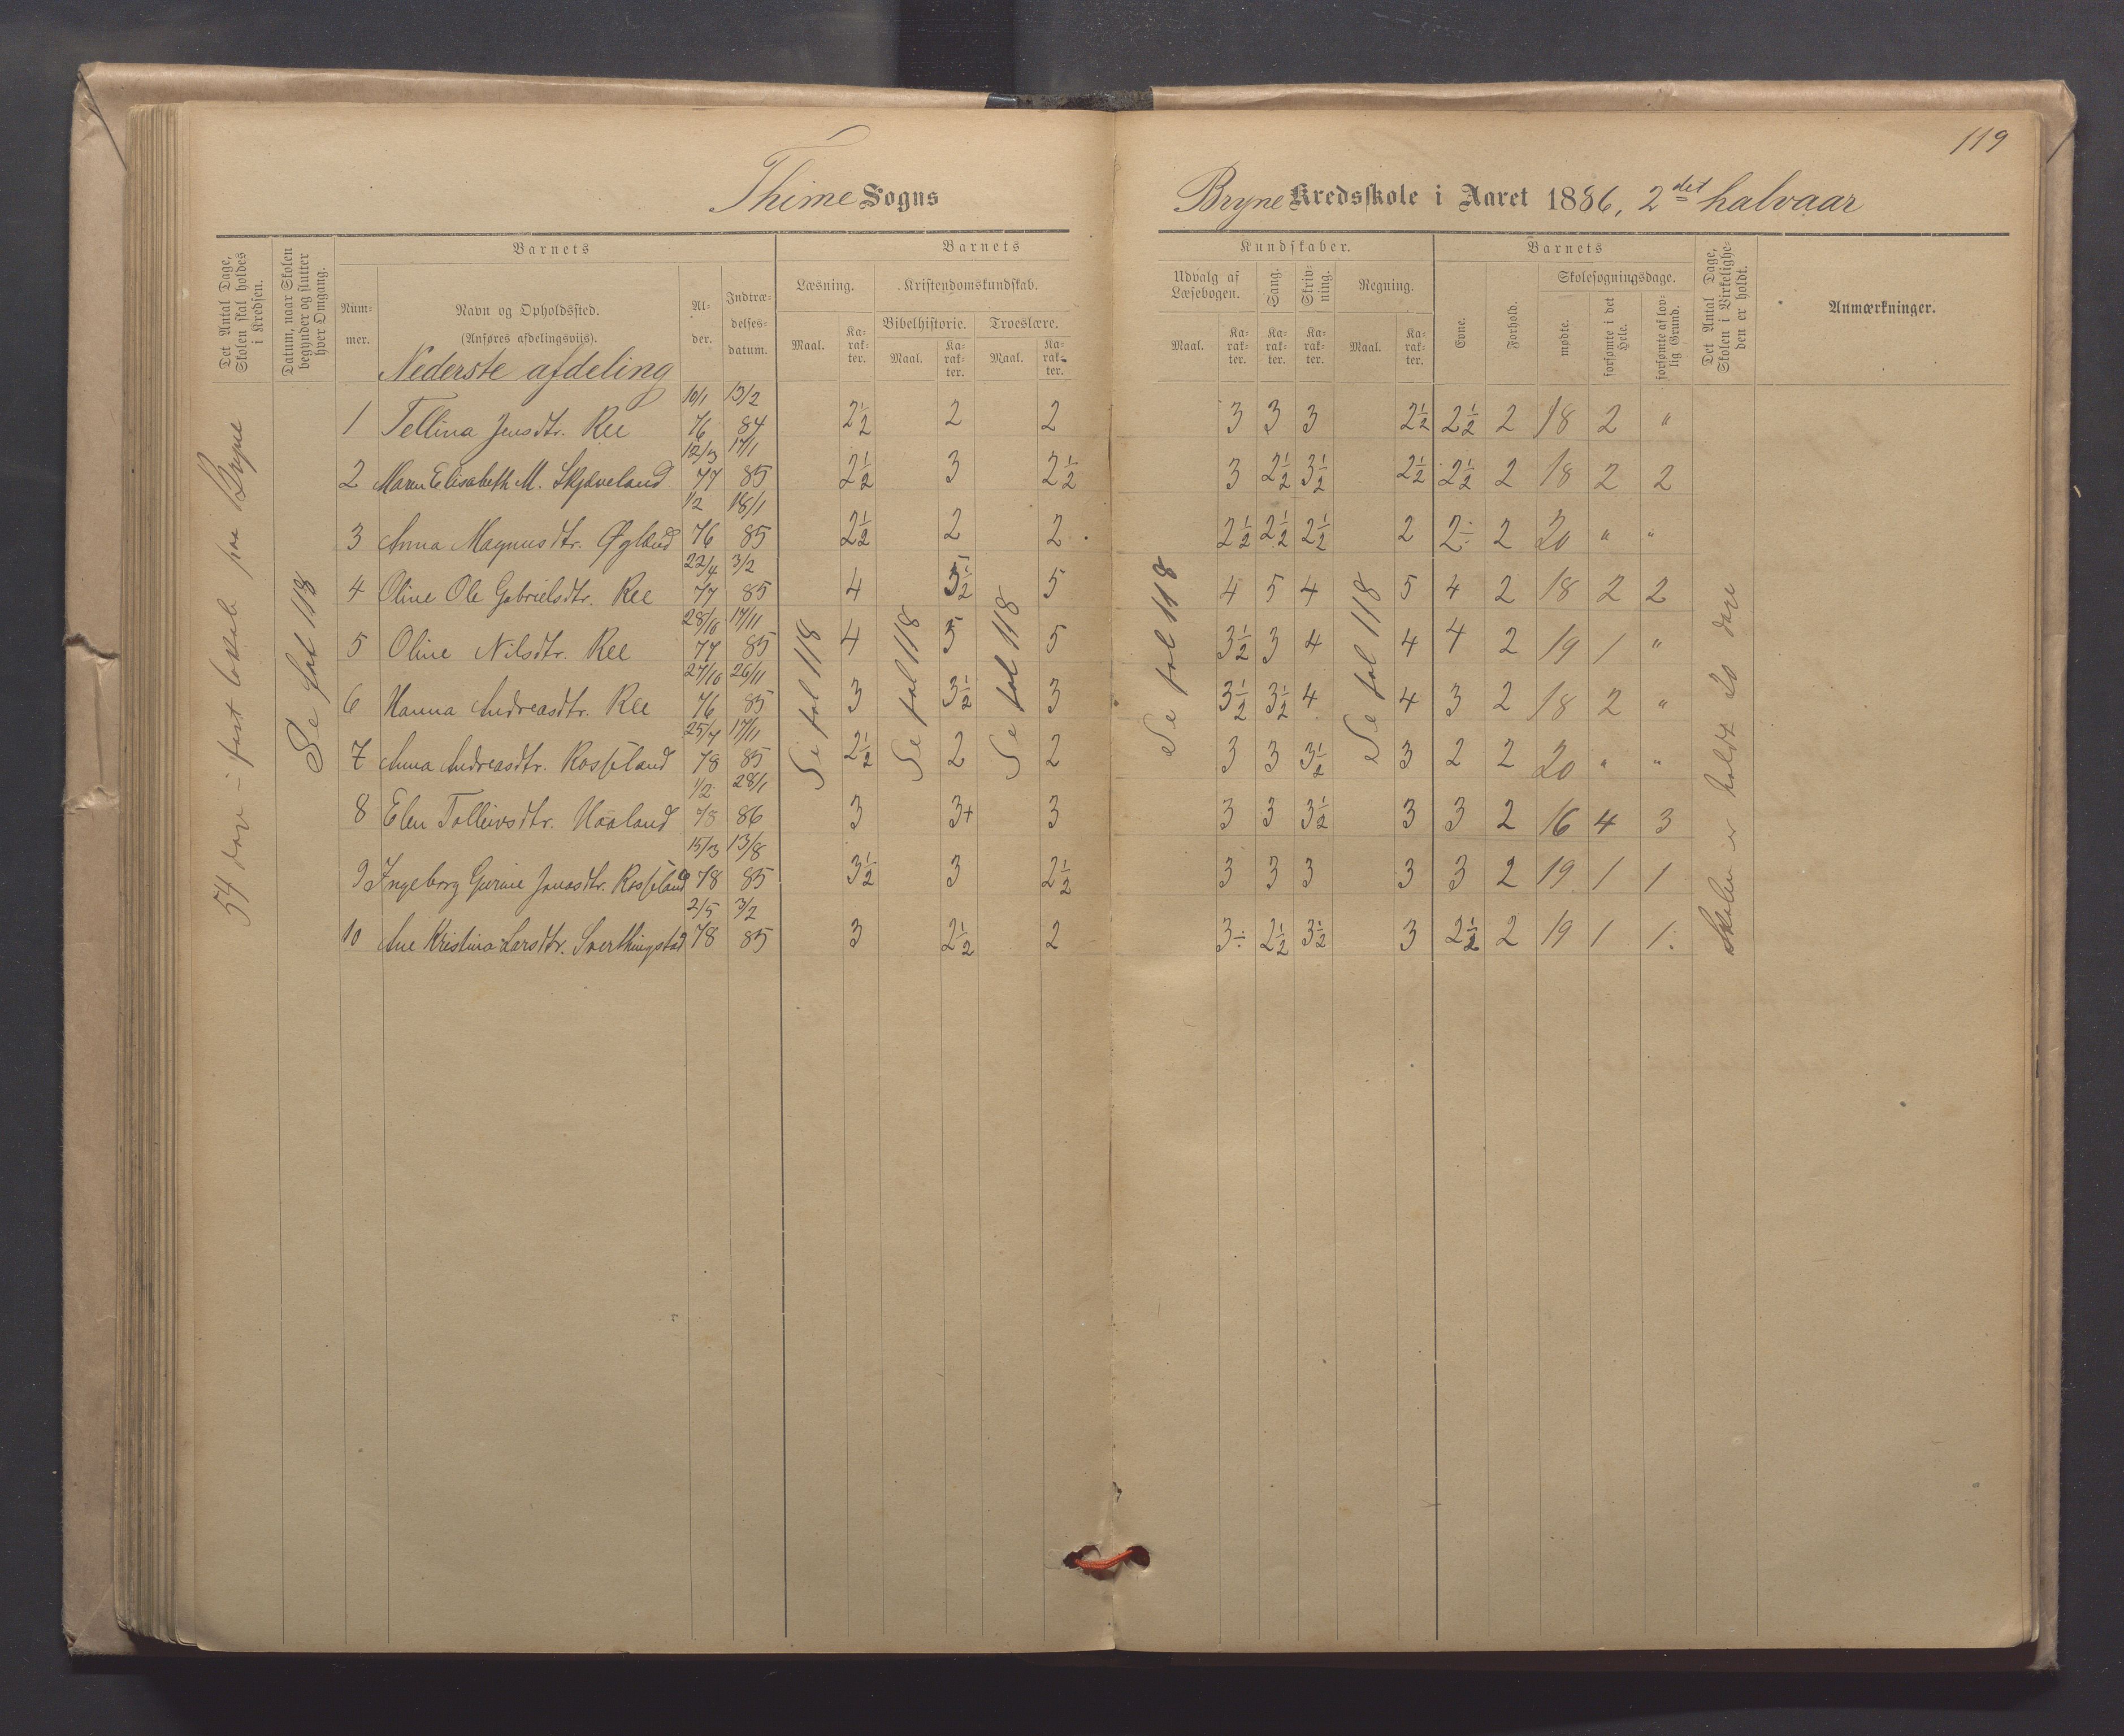 119
Thime Sogns Bryne Kredsskole i Aaret 1886, 2det halvaar
Det Antal Dage, Skolen skal holdes i Kredsen.
Datum, naar Skolen begynder og slutter hver Omgang.
Barnets
Nummer.
Navn og Opholdssted.
(Anføres afdelingsviis).
Alder.
Indtrædelsesdatum.
Barnets Kundskaber.
Læsning.
Maal. Karakter.
Kristendomskundskab.
Bibelhistorie. Troeslære.
Maal. Karakter. Maal. Karakter.
Udvalg af Læsebogen.
Maal. Karakter.
Sang.
Karakter.
Skrivning.
Karakter.
Regning.
Maal. Karakter.
Barnets
Evne.
Forhold.
Skolesøgningsdage.
mødte.
forsømte i det Hele.
forsømte af lovlig Grund.
Det Antal Dage, Skolen i Virkeligheden er holdt.
Anmærkninger.
Nederste afdeling
54 dage i fast lokale paa Bryne
Se fol 118
Se fol 118
Se fol 118
Se fol 118
Se fol 118
Se fol 118
Skolen er holdt 20 dage
1 Tellina Jensdtr. Ree 10/1 76 13/2 84 2½ 2 2 3 3 3 2½ 2½ 2 18 2 "
2 Maren Elisabeth M. Skjæveland 12/3 77 17/1 85 2½ 3 2½ 3 2½ 3½ 2½ 2½ 2 18 2 2
3 Anna Magnusdtr. Øgland 1/2 76 18/1 85 2½ 2 2 2½ 2½ 2½ 2 2÷ 2 20 " "
4 Oline Ole Gabrielsdtr. Ree 22/4 77 3/2 85 4 3½ 5 4 5 4 5 4 2 18 2 2
5 Oline Nilsdtr. Ree 28/10 77 17/11 85 4 5 5 3½ 3 4 4 4 2 19 1 "
6 Hanna Andreasdtr. Ree 27/10 76 26/11 85 3 3½ 3 3½ 3½ 4 4 3 2 18 2 "
7 Anna Andreasdtr. Rosseland 25/7 78 17/11 85 2½ 2 2 3 3 3½ 3 2 2 20 " "
8 Elen Tolleivsdtr. Haaland 1/2 78 28/1 86 3 3+ 3 3 3 3½ 3 3 2 16 4 3
9 Ingeborg Gurine Jonasdtr. Rosseland 15/3 78 13/8 85 3½ 3 2½ 3 3 3 3 3 2 19 1 1
10 Ane Kristina Larsdtr. Sverthingstad 2/5 78 3/2 85 3 2½ 2 3÷ 2½ 3½ 3 2½ 2 19 1 1.